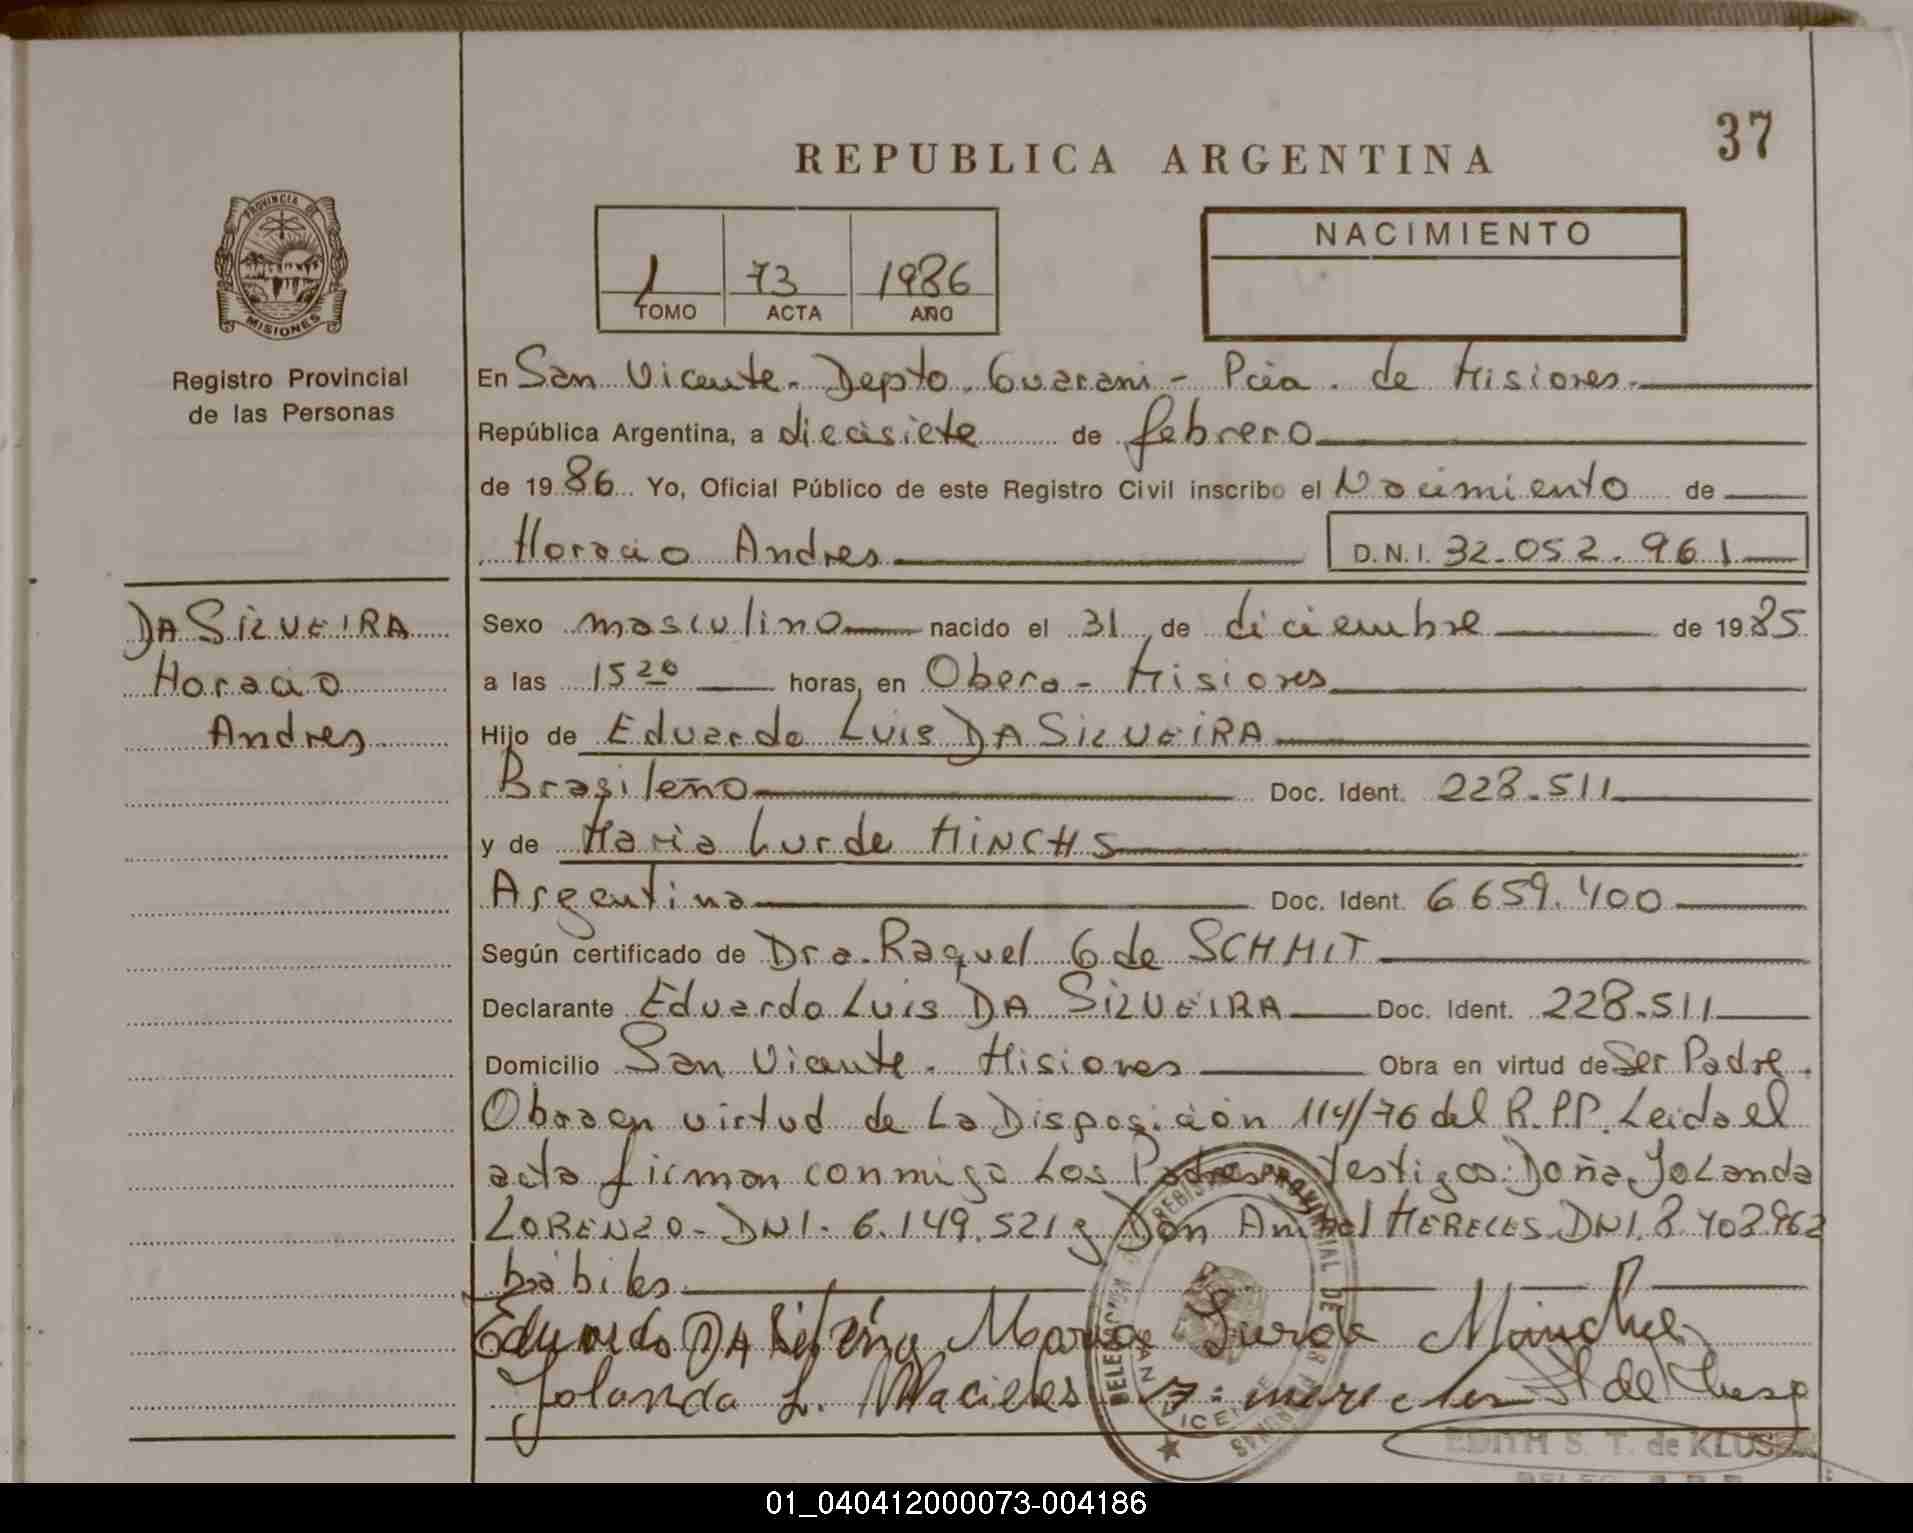 37
REPUBLICA ARGENTINA
PROVINCIA DE
MISIONES
Registro Provincial
de las Personas
1 73 1986
TOMO ACTA AÑO
NACIMIENTO
En San Vicente - Depto. Guarani - Pcia. de Misiones.
República Argentina, a diecisiete de febrero
de 1986. Yo, Oficial Público de este Registro Civil inscribo el Nacimiento de
Horacio Andres D.N.I. 32.052.961
DA SILVEIRA
Horacio
Andres
Sexo masculino nacido el 31 de diciembre de 1985
a las 15 20 horas, en Obera - Misiones
Hijo de Eduardo Luis DA SILVEIRA
Brasileño Doc. Ident. 228.511
y de Maria Lurde MINCHS
Argentina Doc. Ident. 6.659.400
Según certificado de Dra. Raquel G de SCHMIT
Declarante Eduardo Luis DA SILVEIRA Doc. Ident. 228.511
Domicilio San Vicente - Misiones Obra en virtud de Ser Padre.
Obra en virtud de La Disposición 114/76 del R.P.P. Leida el
acta firman conmigo Los Padres testigos: Doña Yolanda
LORENZO - DNI - 6.149.521 y Don Anibal MERELES DNI. 8.403.962
hábiles
Eduardo DA Maria Lurde
Yolanda L.
DELEGACION REGISTRO PROVINCIAL DE LAS PERSONAS
SAN VICENTE
EDITH S. T. de
01_040412000073-004186